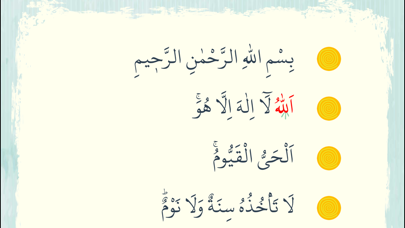 بِسْمِ اللهِ الرَّحْمٰنِ الرَّحِيمِ
اَللّٰهُ لَآ اِلٰهَ اِلَّا هُوَۚ
اَلْحَىُّ الْقَيُّومُۚ
لَا تَاْخُذُهُ سِنَةٌ وَلَا نَوْمٌۜ